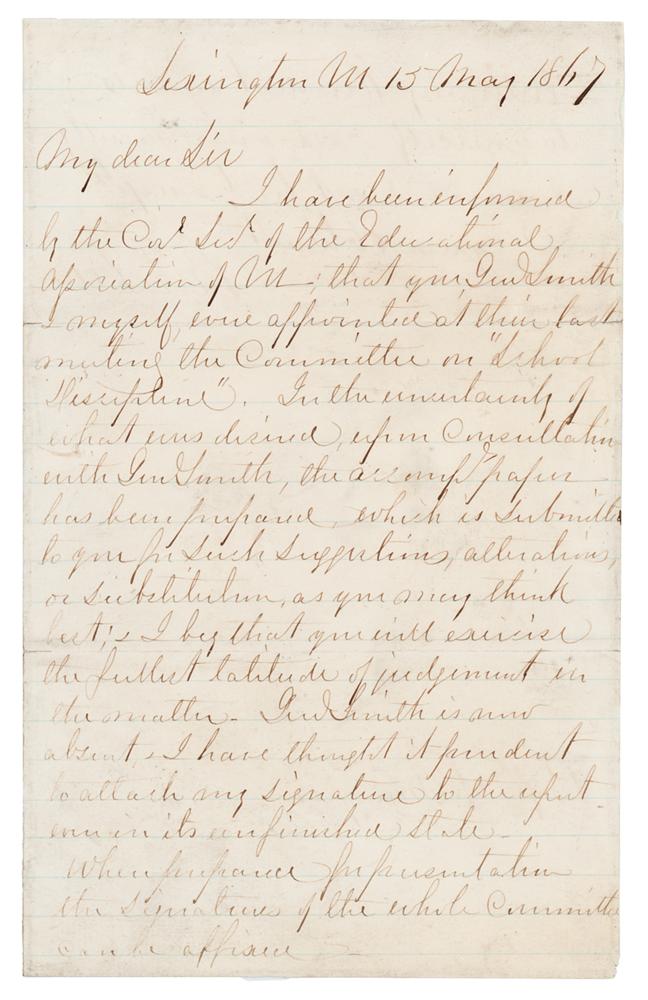 Lexington Va 15 May 1867
My dear Sir
I have been informed
by the Cors Secy of the Educational
Association of Va; that you, Genl Smith
& myself, were appointed at their last
meeting the Committee on "School
Discipline". In the uncertainty of
what was desired, upon Consultation
with Genl Smith, the accompg paper
has been prepared, which is submitted
to you for such suggestions, alterations,
or substitution, as you may think
best; & I beg that you will exercise
the fullest latitude of judgement in
the matter - Genl Smith is now
absent, & I have thought it prudent
to attach my signature to the report
even in its unfinished state -
When prepared for presentation
the signatures of the whole Committee
can be affixed -